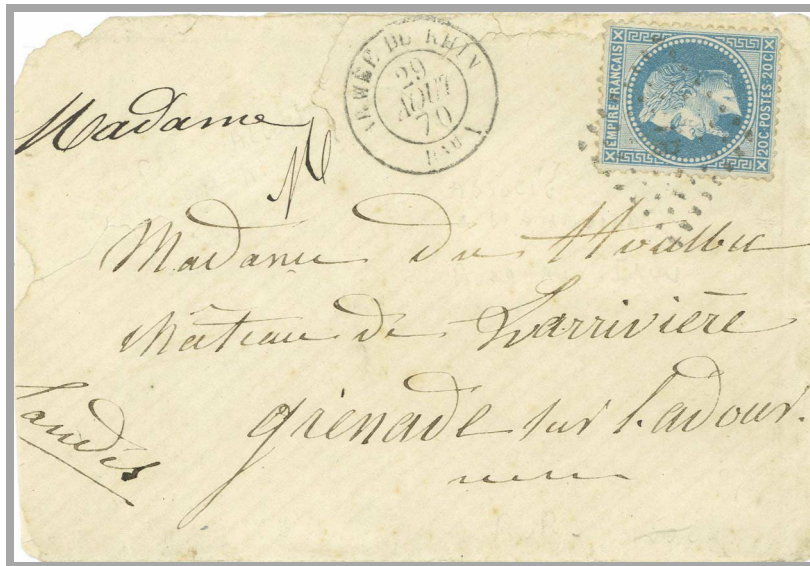 ARMÉE DU RHIN
29
AOUT
70
EMPIRE FRANÇAIS
20 C·POSTES·20 C
Madame
Madame de
château de Larrivière
grenade sur l'adour.
Landes